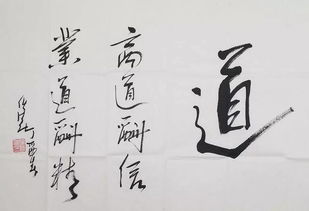 道
商道酬信
業道酬精